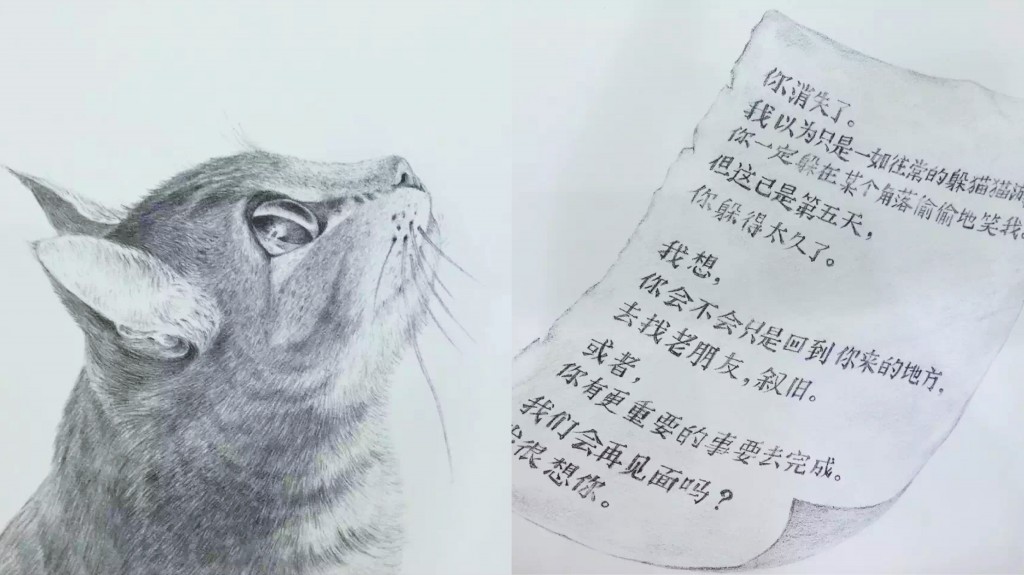 你消失了。
我以为只是一如往常的躲猫猫
你一定躲在某个角落偷偷地笑我。
但这已是第五天，
你躲得太久了。
我想，
你会不会只是回到你来的地方，
去找老朋友，叙旧。
或者，
你有更重要的事要去完成。
我们会再见面吗？
很想你。